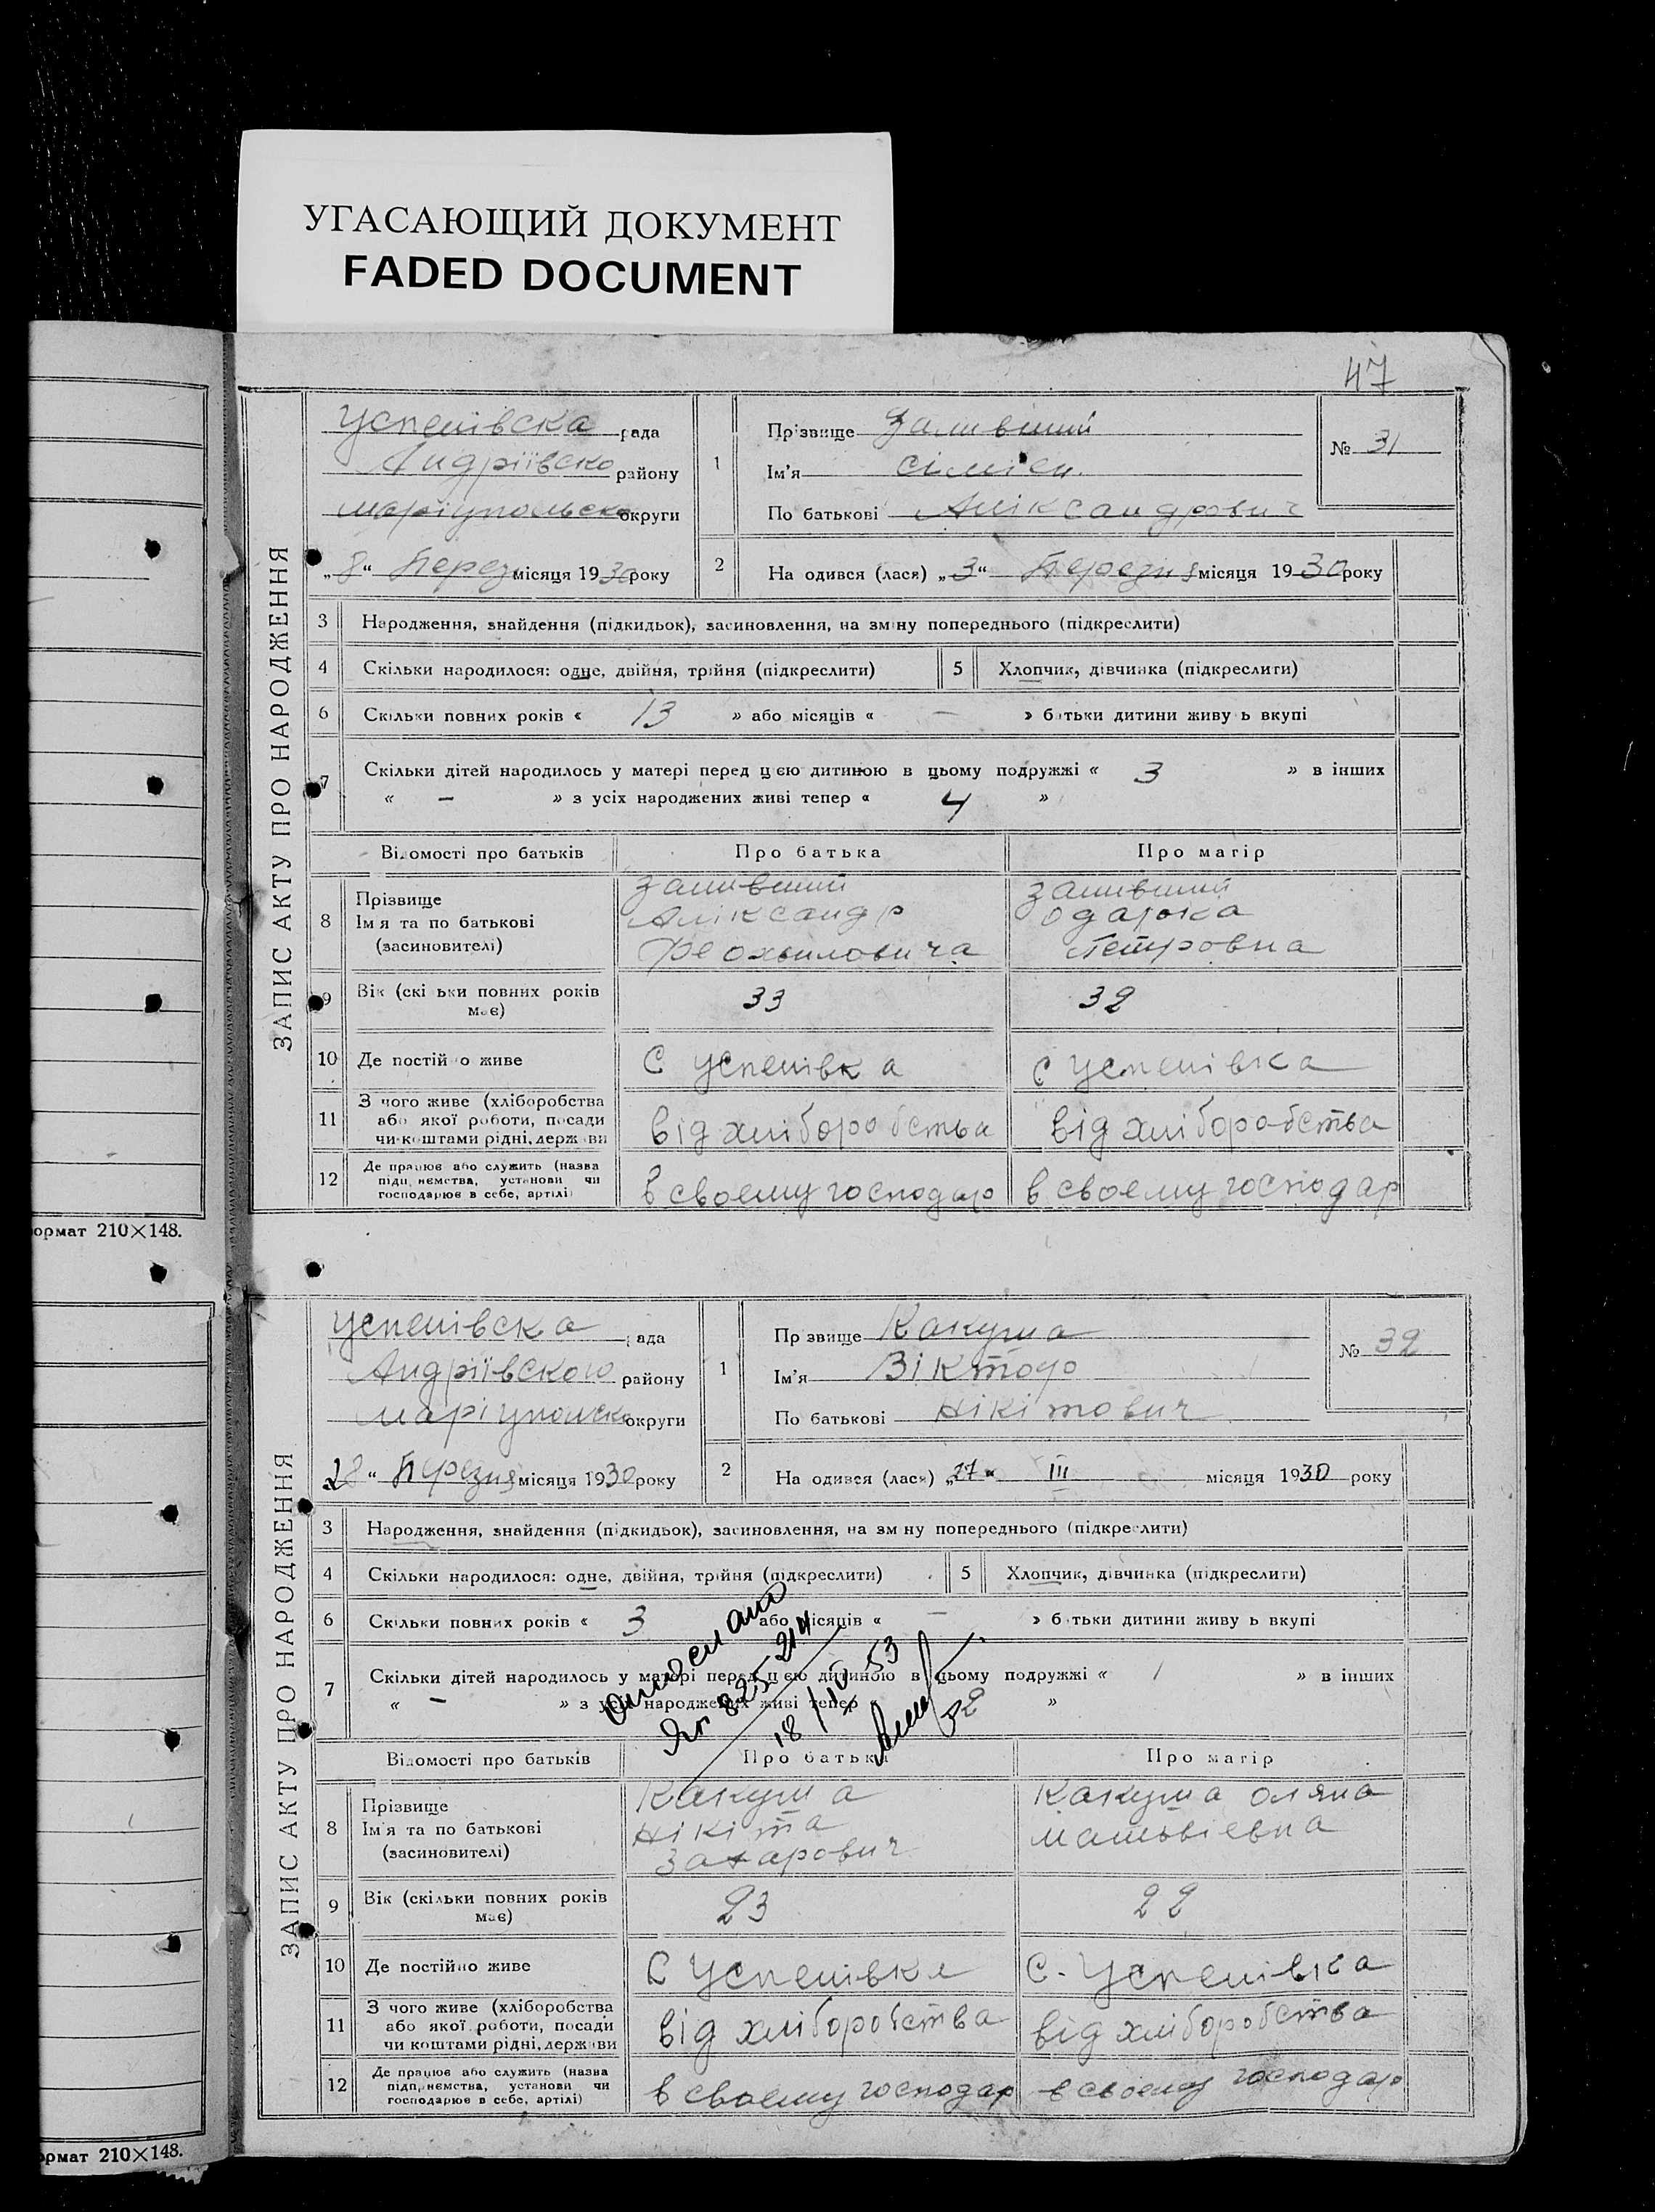 УГАСАЮЩИЙ ДОКУМЕНТ
FADED DOCUMENT
47
ЗАПИС АКТУ ПРО НАРОДЖЕННЯ
Успенівска рада
Андріївско району
маріупольско округи
„8“ Берез місяця 1930 року
1
Прізвище Заливший
Ім'я
По батькові Аліксандрович
№ 31
2
На одився (лася) „3“ Березня місяця 1930 року
3 Народження, знайдення (підкидьок), засиновлення, на зміну попереднього (підкреслити)
4 Скільки народилося: одне, двійня, трійня (підкреслити) 5 Хлопчик, дівчинка (підкреслити)
6 Скільки повних років « 13 » або місяців « — » батьки дитини живу ь вкупі
7 Скільки дітей народилось у матері перед цією дитиною в цьому подружжі « 3 » в інших
« — » з усіх народжених живі тепер « 4 »
Відомості про батьків Про батька Про матір
8 Прізвище
Ім'я та по батькові
(засиновителі)
Заливший
Аліксандр
Феохвиловича
Заливший
Одарка
Петровна
9 Вік (скі ьки повних років
має)
33 32
10 Де постій о живе С Успенівка с Успенівка
11 З чого живе (хліборобства
або якої роботи, посади
чи коштами рідні, держ ви
від хліборобства від хліборобства
12 Де працює або служить (назва
підп иємства, установи чи
господарює в себе, артілі)
в своему господар в своему господар
ормат 210×148.
ЗАПИС АКТУ ПРО НАРОДЖЕННЯ
Успенівска ада
Андріївского району
Маріупольско округи
28 “ Березня місяця 1930 року
1
Пр звище Какуша
Ім'я Віктор
По батькові Нікітович
№ 32
2
На одився (лася) „27“ III місяця 1930 року
3 Народження, знайдення (підкидьок), засиновлення, на зм ну попереднього (підкреслити)
4 Скільки народилося: одне, двійня, трійня (підкреслити) 5 Хлопчик, дівчинка (підкреслити)
6 Скільки повних років « 3 або місяців « — » б тьки дитини живу ь вкупі
7 Скільки дітей народилось у матері перед цією дитиною в цьому подружжі « 1 » в інших
« — » з усіх народжених живі тепер « 2 »
825214
18/III 53
Відомості про батьків Про батька Про матір
8 Прізвище
Ім'я та по батькові
(засиновителі)
Какуша
Нікіта
Захарович
Какуша Оляна
Матьвіевна
9 Вік (скільки повних років
має)
23 22
10 Де постійно живе С Успенівка С. Успенівка
11 З чого живе (хліборобства
або якої роботи, посади
чи коштами рідні, держ ви
від хліборобства від хліборобства
12 Де працює або служить (назва
підприємства, установи чи
господарює в себе, артілі)
в своему господар в своему господар
ормат 210×148.